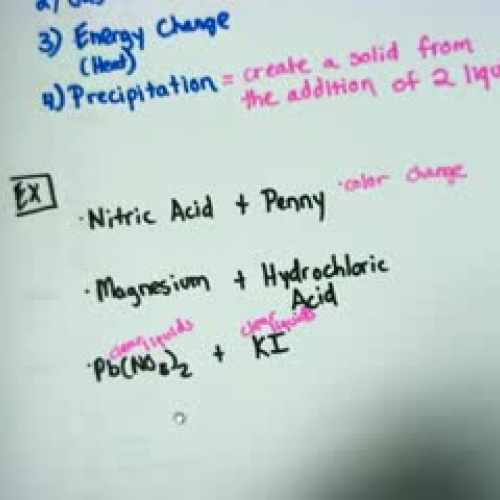 2) Gas
3) Energy Change
(Heat)
4) Precipitation = create a solid from
the addition of 2 liqu
EX
· Nitric Acid + Penny · color change
· Magnesium + Hydrochloric
Acid
clear liquids clear liquids
· Pb(NO3)2 + KI